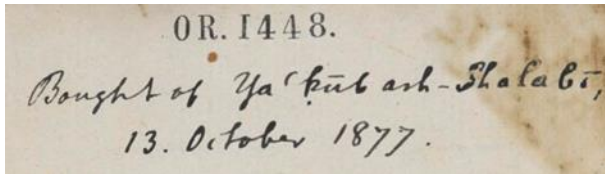 OR. 1448.
Bought of Ya‘ḳūb ash-Shalabī,
13. October 1877.